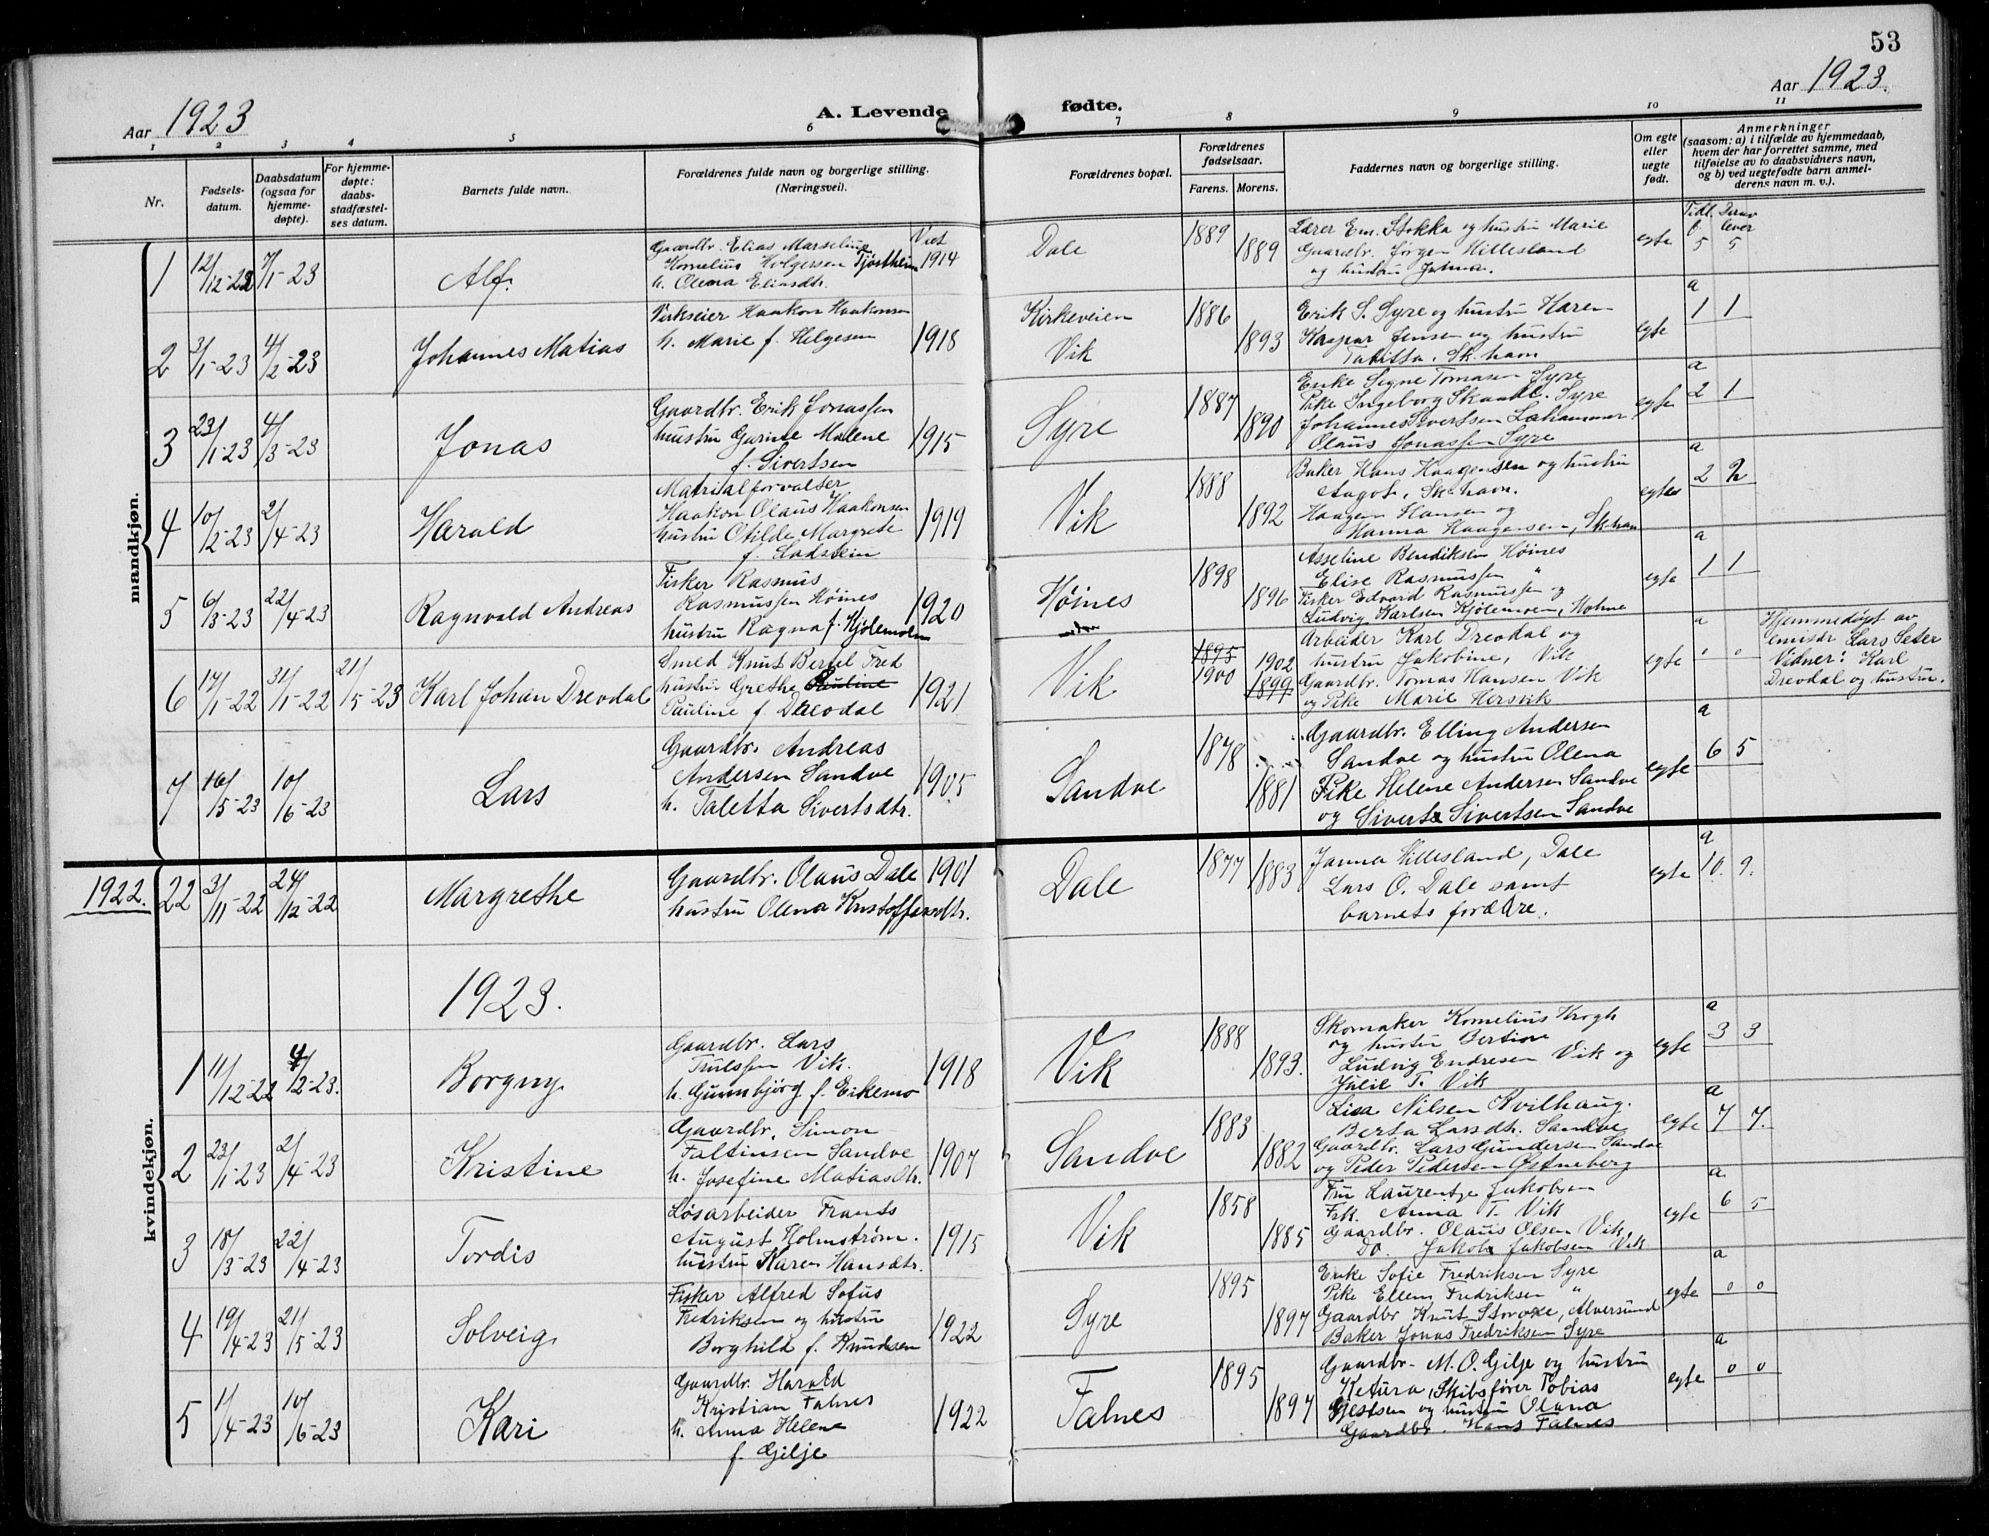 53
Aar 1923
A. Levende fødte.
Aar 1923.
1 2 3 4 5 6 7 8 9 10 11
Nr.
Fødsels-
datum.
Daabsdatum
(ogsaa for
hjemme-
døpte).
For hjemme-
døpte:
daabs-
stadfæstel-
ses datum.
Barnets fulde navn.
Forældrenes fulde navn og borgerlige stilling.
(Næringsvei).
Forældrenes bopæl.
Forældrenes
fødselsaar.
Farens. Morens.
Faddernes navn og borgerlige stilling.
Om egte
eller
uegte
født.
Anmerkninger
(saasom: a) i tilfælde av hjemmedaab,
hvem der har forrettet samme, med
tilføielse av to daabsvidners navn,
og b) ved uegtefødte barn anmel-
derens navn m. v.).
Tidl. Derav
f. lever
mandkjøn.
1 12/12-22 7/1-23 Alf.
Gaardbr. Elias Marselius
Kornelius Holgersen Tjøstheim
h. Olena Eliasdtr.
Viet
1914
Dale 1889 1889
Lærer Em. Stokka og hustru Marie
Gaardbr. Jørgen Hillesland
og hustru
egte 5 5
2 3/1-23 4/2-23 Johannes Matias
Virkseier Haakon Haakonsen
h. Marie f. Helgesen
1918
Kirkeveien
Vik
1886 1893
Erik S. Syre og hustru Karen
Kaspar Jensen og hustru
Tabitta. Sk.havn
egte a 1 1
3 23/1-23 4/3-23 Jonas
Gaardbr. Erik Jonassen
hustru Gurine Malene
f. Sivertsen
1915
Syre 1887 1890
Enke Signe Tomasen Syre
Pike Ingeborg Skaadel. Syre
Johannes Sivertsen Lahammer
Olaus Jonassen Syre
egte a 2 1
4 10/2-23 2/4-23 Harald
Matrialforvalter
Haakon Olaus Haakonsen
hustru Otilde Margrete
f. Ladstein
1919
Vik 1888 1892
Baker Hans Haagensen og hustru
Aagot, Sk.havn.
Haagen Hansen og
Hanna Haagensen, Sk.havn
egte a 2 2
5 6/3-23 22/4-23 Ragnvald Andreas
Fisker Rasmus
Rasmussen Høines
hustru Ragna f. Kjølemoen
1920
Høines 1898 1896
Asseline Bendiksen Høines
Elise Rasmussen "
Fisker Edvard Rasmussen og
Ludvig Karlsen Kjølemoen, Holme
egte a 1 1
6 17/1-22 31/1-22 21/5-23 Karl Johan Drevdal
Smed Knut Bertel Fred
hustru Grethe Pauline
Pauline f. Drevdal
1921
Vik 1895 1900 1902 1899
Arbeider Karl Drevdal og
hustru Jakobine, Vik
Gaardbr. Tomas Hansen Vik
og Pike Marie Hersvik
egte a 0 0
Hjemmedøpt av
emisær Lars Seter
Vidner: Karl
Drevdal og hustru.
7 16/5-23 10/6-23 Lars
Gaardbr. Andreas
Andersen Sandve
h. Taletta Sivertsdtr.
1905
Sandve 1878 1881
Gaardbr. Elling Andersen
Sandve og hustru Olena
Pike Helene Andersen Sandve
og Sivert Sivertsen Sandve
egte a 6 5
kvindekjøn.
1922. 22 3/11-22 24/12-22 Margrethe
Gaardbr. Olaus Dale
hustru Olena Kristoffersdtr.
1901
Dale 1877 1883
Janna Hillesland, Dale
Lars O. Dale samt
barnets forældre.
egte a 10. 9.
1923.
1 11/12-22 4/2-23. Borgny
Gaardbr. Lars
Trulssen Vik.
h. Gunnbjørg f. Eikemo
1918
Vik 1888 1893.
Skomaker Kornelius Krogh
og hustru Bertine
Ludvig Endresen Vik og
Julie T. Vik
egte a 3 3
2 23/1-23 2/4-23 Kristine
Gaardbr. Simon
Faltinsen Sandve
h. Josefine Matiasdtr.
1907
Sandve 1883 1882
Lisa Nilsen Kvilhaug.
Berta Larsdtr. Sandve
Gaardbr. Lars Gundersen Sandve
og Peder Pedersen Østneberg
egte a 7 7.
3 18/3-23 22/4-23 Tordis
Løsarbeider Frants
August Holmstrøm.
hustru Karen Hansdtr.
1915
Vik 1858 1885
Fru Laurentze Jakobsen
Frk. Anna T. Vik
Gaardbr. Olaus Olsen Vik
Do. Jakob Jakobsen Vik
egte a 6 5
4 19/4-23 21/5-23 Solveig
Fisker Alfred Sofus
Fredriksen og hustru
Borghild f. Knudsen
1922
Syre 1895 1897
Enke Sofie Fredriksen Syre
Pike Ellen Fredriksen "
Gaardbr Knut Storoxe, Alversund
Baker Jonas Fredriksen Syre
egte a 0 0
5 1/4-23 10/6-23 Kari
Gaardbr. Harald
Kristian Falnes
h. Anna Helene
f. Gilje
1922
Falnes 1895 1897
Gaardbr. M. O. Gilje og hustru
Ketura, Skibsfører Tobias
Gjestsen og hustru Olena
Gaardbr. Hans Falnes
egte a 0 0